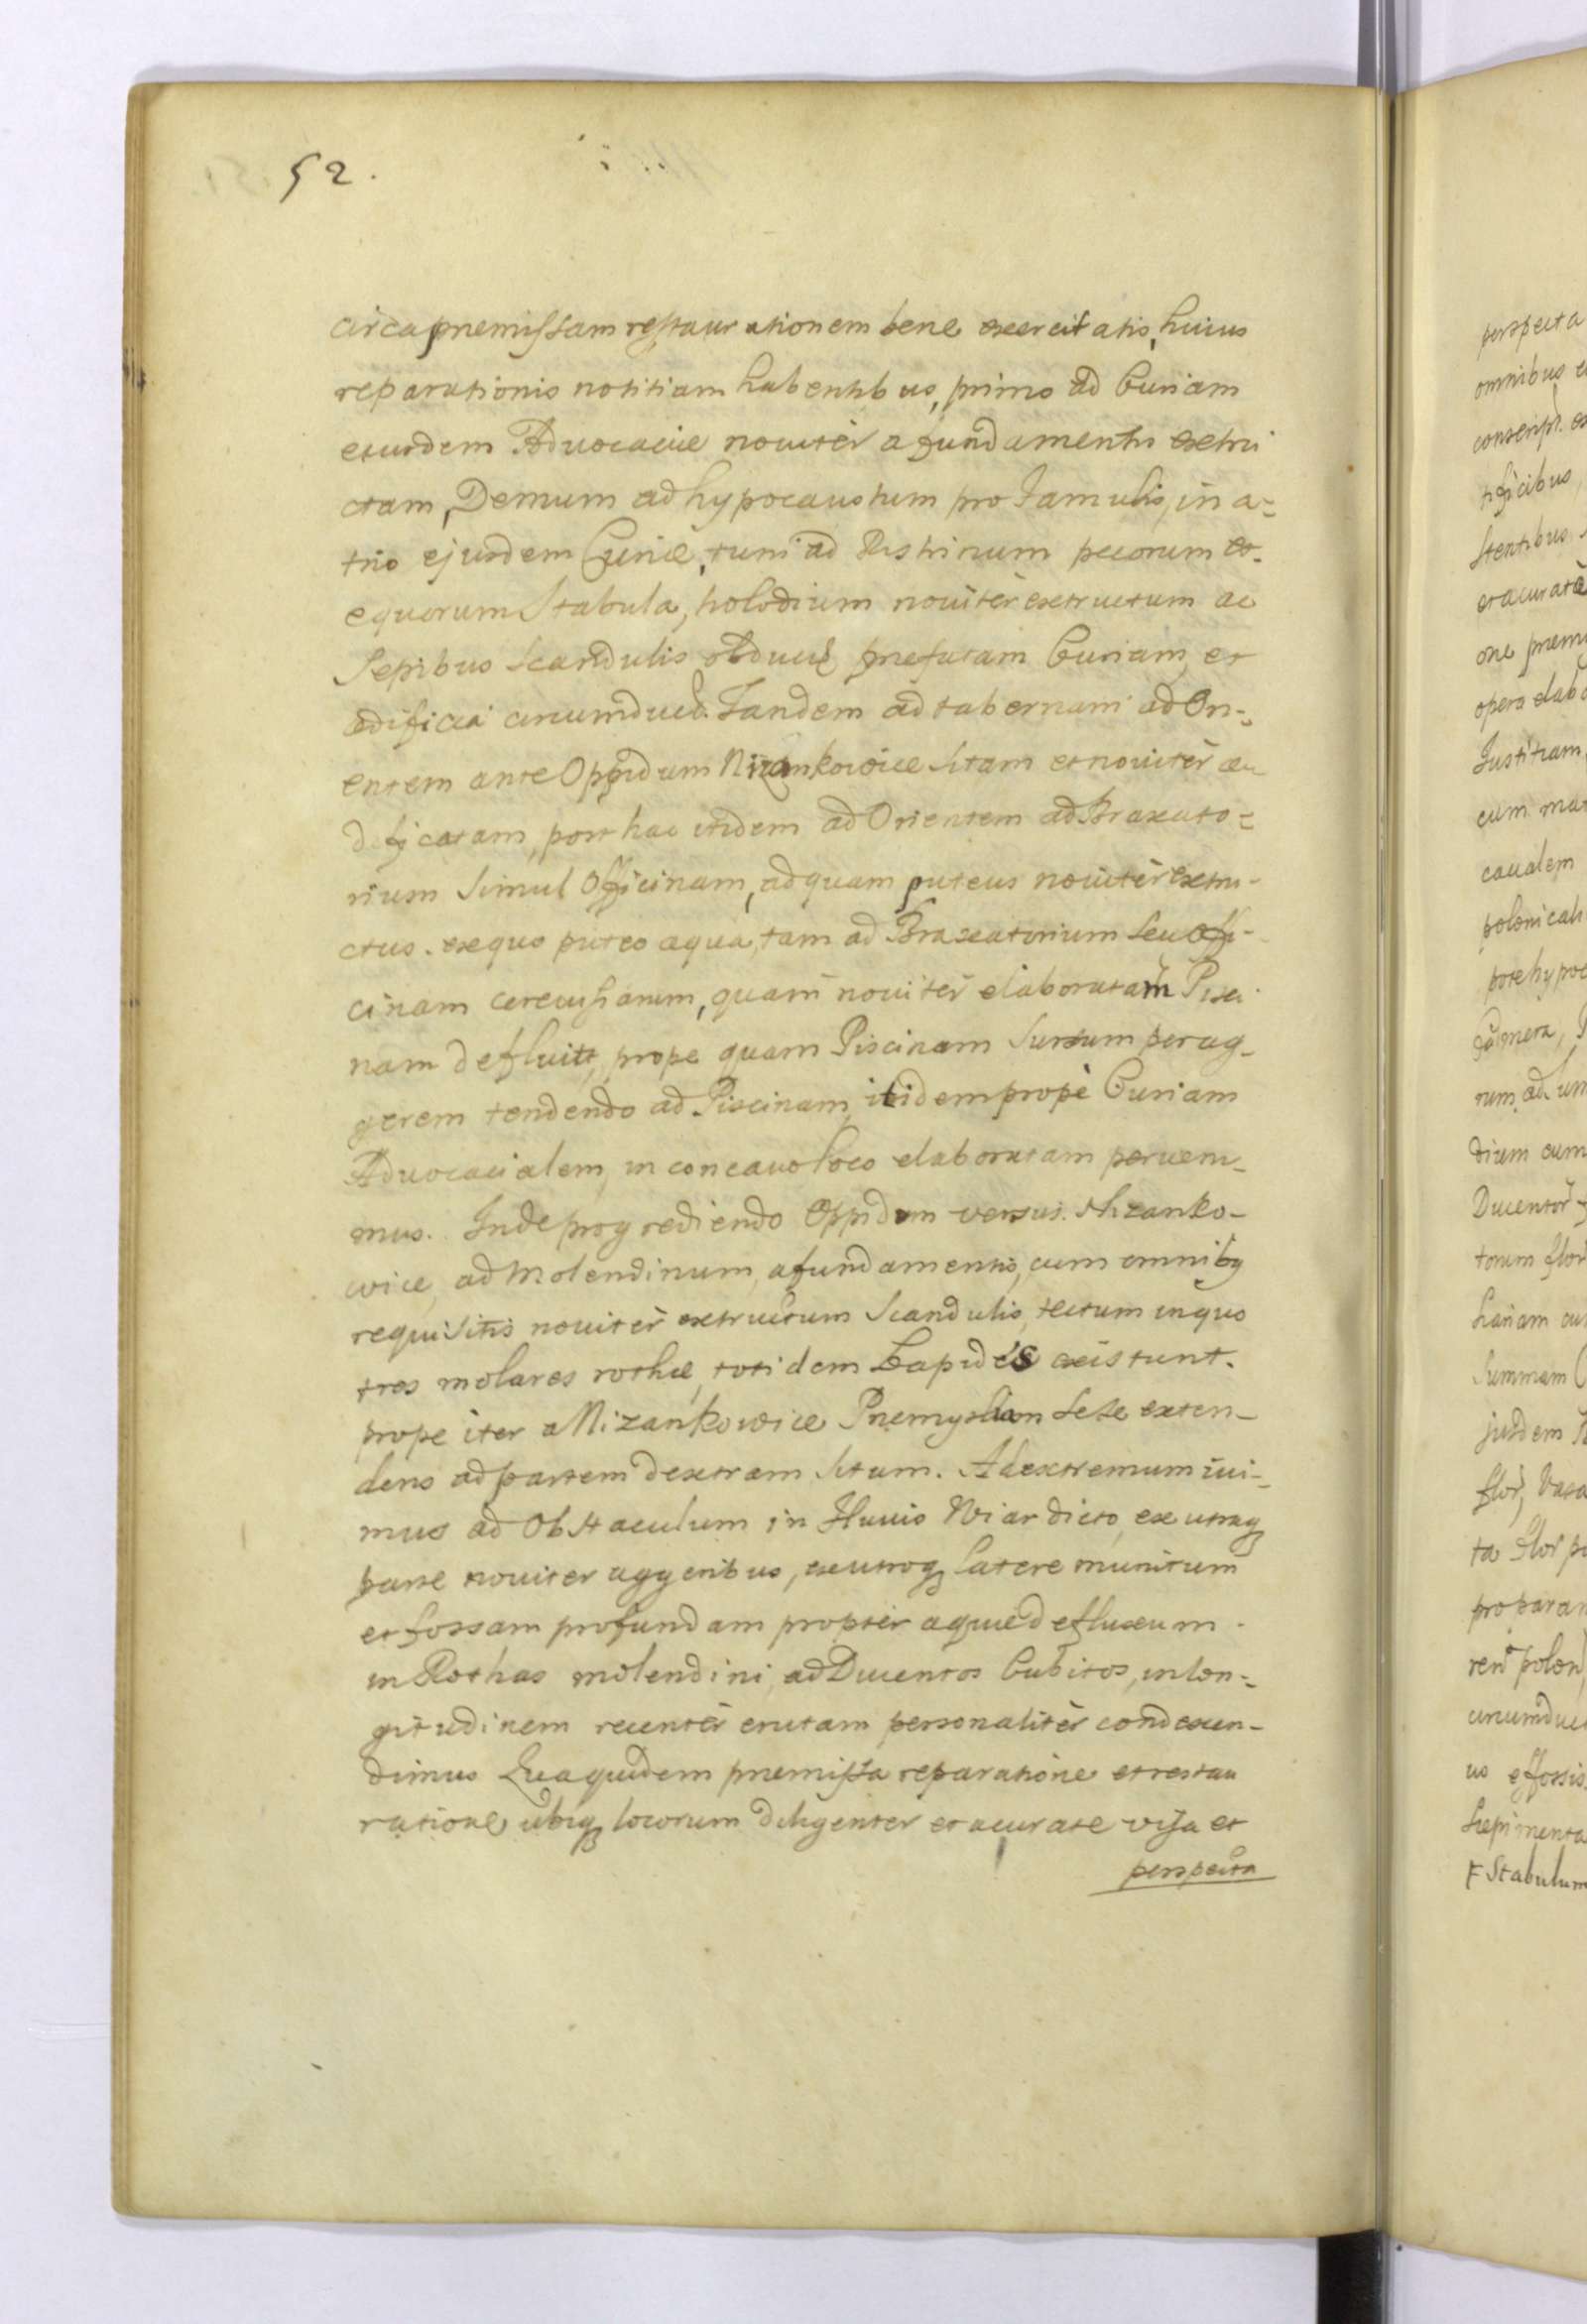 52.
circa premissam restaurationem bene exercitatis, huius
reparationis notitiam habentibus, primo ad Curiam
eiusdem Advocaciæ noviter a fundamentis extru
ctam, Demum ad hypocaustum pro famulis, in a=
trio ejusdem Curiæ, tum ad Pistrinum pecorum et
equorum Stabula, holodium noviter extructum ac
Sepibus Scandulis obduct prefatam Curiam et
ædificia circumduct. Tandem ad tabernam ad Ori=
entem ante Oppidum Nizankowice sitam et noviter æ
dificatam, post hac itidem ad Orientem ad Braxato=
rium simul Officinam, ad quam puteus noviter extru-
ctus. ex quo puteo aqua, tam ad Braxatorium seu offi-
cinam cerevisiarum, quam noviter elaboratam Pisci
nam defluit, prope quam Piscinam sursum per ag-
gerem tendendo ad Piscinam ibidem prope Curiam
Advocacialem, in concavo loco elaboratam perveni-
mus. Inde progrediendo Oppidum versus Nizanko-
wice, ad Molendinum, a fundamentis, cum omnibq
requisitis noviter extructum Scandulis, tectum in quo
tres molares rothæ, totidem Lapides existunt.
prope iter a Nizankowice Premysliam sese exten-
dens ad partem dextram situm. Ad extremum ivi-
mus ad Obstaculum in Fluvio Wiar dicto, ex utraq
parte noviter aggeribus, ex utroq latere munitum
et fossam profundam propter aquæ defluxum
in Rothas molendini, ad Ducentos Cubitos, in lon=
gitudinem recenter erutam personaliter condescen-
dimus Qua quidem premissa reparatione et restau
ratione ubiq locorum diligenter et accurate visa et
perspecta
perspecta
omnibus
conscript.
tificibus
stentibus
et accurate
one prem
opera elabo
Justitiam
cum
caualem
polonicali
rum ad
dium cum
Ducentor
torum flor
Summam
jusdem
ta flor
proparan
ren polon
circumduc
us effossis
Sepimenta
Stabulum